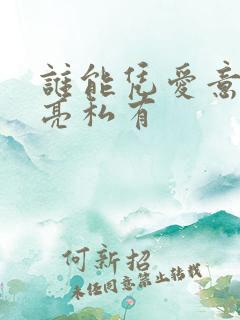 誰能凭愛意
亮私有
何新招
未任同意禁止轉載